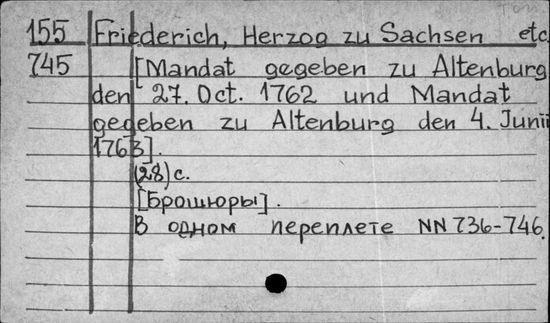 155 Friederich, Herzog zu Sachsen etc.
745 [Mandat gegeben zu Altenburg
den 27. Oct. 1762 und Mandat
gegeben zu Altenburg den 4. Junii
1763].
(28) с.
[Брошюры].
В одном переплете NN 736-746.